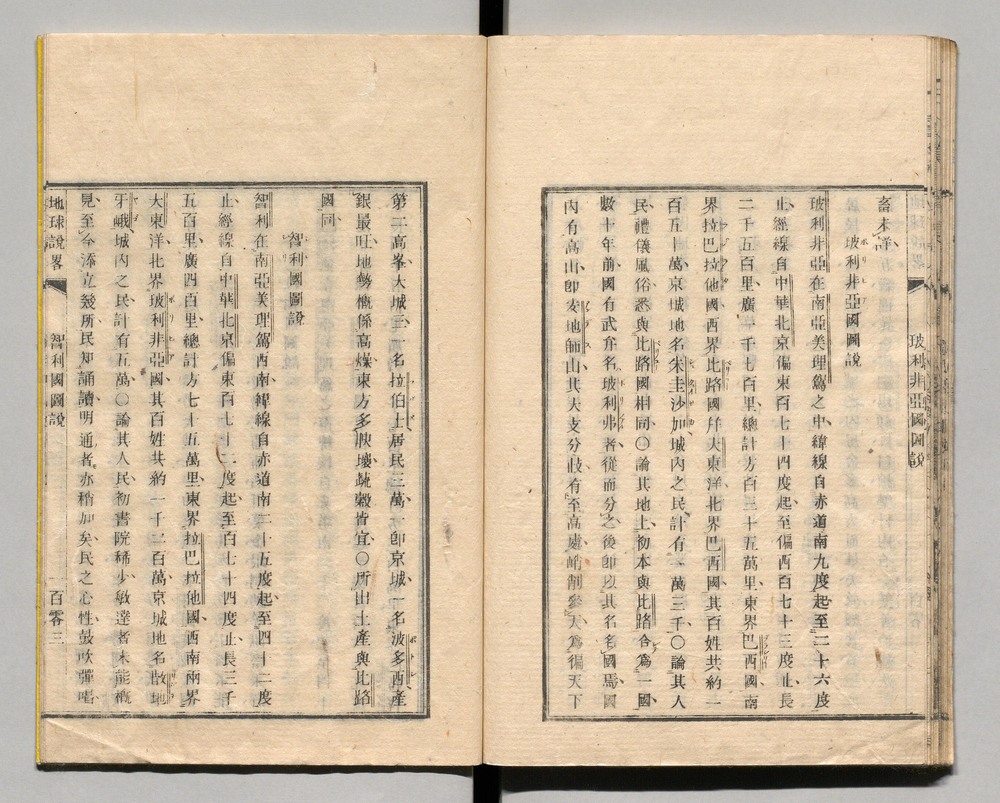 玻利非亞國圖說
畜未詳
玻利非亞國圖說
玻利非亞在南亞美理駕之中緯線自赤道南九度起至二十六度
止經線自中華北京偏東百七十四度起至偏西百七十三度止長
二千五百里廣一千七百里總計方百三十五萬里東界巴西國南
界拉巴拉他國西界比路國幷大東洋北界巴西國其百姓共約一
百五十萬京城地名朱圭沙加城內之民計有一萬三千〇論其人
民禮儀風俗悉與比路國相同〇論其地土初本與比路合爲一國
數十年前國有武弁名玻利弗者從而分之後卽以其名名國焉國
內有高山卽安地師山其大支分歧有至高處峭削參天爲徧天下
第二高峯大城二一名拉伯土居民三萬卽京城一名波多西產
銀最旺地勢概係高燥東方多腴壤蔬穀皆宜〇所出土產與比路
國同
智利國圖說
智利在南亞美理駕西南緯線自赤道南二十五度起至四十二度
止經線自中華北京偏東百七十二度起至百七十四度止長三千
五百里廣四百里總計方七十五萬里東界拉巴拉他國西南兩界
大東洋北界玻利非亞國其百姓共約一千二百萬京城地名散地
牙峨城內之民計有五萬〇論其人民初書院稀少敏達者未能概
見至今添立幾所民知誦讀明通者亦稍加矣民之心性鼓吹彈唱
地球說畧
智利國圖說
一百零三